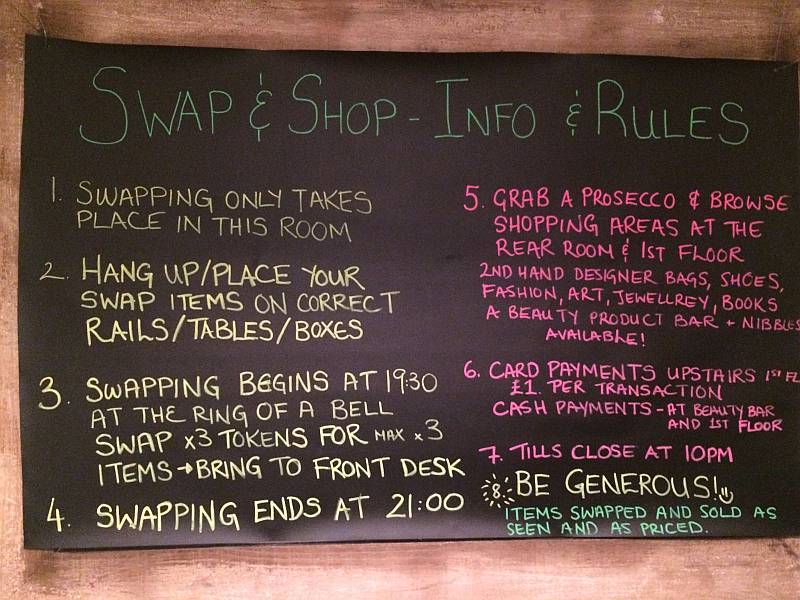 SWAP & SHOP - INFO & RULES
1. SWAPPING ONLY TAKES
PLACE IN THIS ROOM
2. HANG UP/PLACE YOUR
SWAP ITEMS ON CORRECT
RAILS/TABLES/BOXES
3. SWAPPING BEGINS AT 19:30
AT THE RING OF A BELL
SWAP x3 TOKENS FOR MAX x3
ITEMS → BRING TO FRONT DESK
4. SWAPPING ENDS AT 21:00
5. GRAB A PROSECCO & BROWSE
SHOPPING AREAS AT THE
REAR ROOM & 1ST FLOOR
2ND HAND DESIGNER BAGS, SHOES,
FASHION, ART, JEWELLREY, BOOKS
A BEAUTY PRODUCT BAR + NIBBLES
AVAILABLE!
6. CARD PAYMENTS UPSTAIRS 1ST FL
£1. PER TRANSACTION
CASH PAYMENTS - AT BEAUTY BAR
AND 1ST FLOOR
7. TILLS CLOSE AT 10PM
8. BE GENEROUS!
ITEMS SWAPPED AND SOLD AS
SEEN AND AS PRICED.